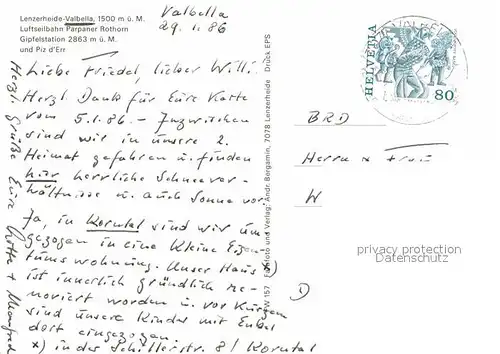 Lenzerheide-Valbella, 1500 m ü. M.
Luftseilbahn Parpaner Rothorn
Gipfelstation 2863 m ü. M.
und Piz d'Err
Valbella
29.1.86
Liebe Friedel, lieber Willi!
Herzl. Dank für Eure Karte
vom 5.1.86 - Inzwischen
sind wir in unsere 2.
Heimat gefahren u. finden
hier herrliche Schneever-
hältnisse u. auch Sonne vor.
Ja, in Korntal sind wir um-
gezogen in eine kleine Eigen-
tumswohnung. Unser Haus x)
ist innerlich gründlich re-
noviert worden u. vor kurzem
sind unsere Kinder mit Enkel
dort eingezogen
x) in der Schillerstr. 8 / Korntal
Herzl. Grüße Eure Lotte + Manfred
Foto und Verlag: Andr. Bergamin, 7078 Lenzerheide Druck EPS
HELVETIA
80
BRD
Herrn + Frau
W
D
privacy protection
Datenschutz